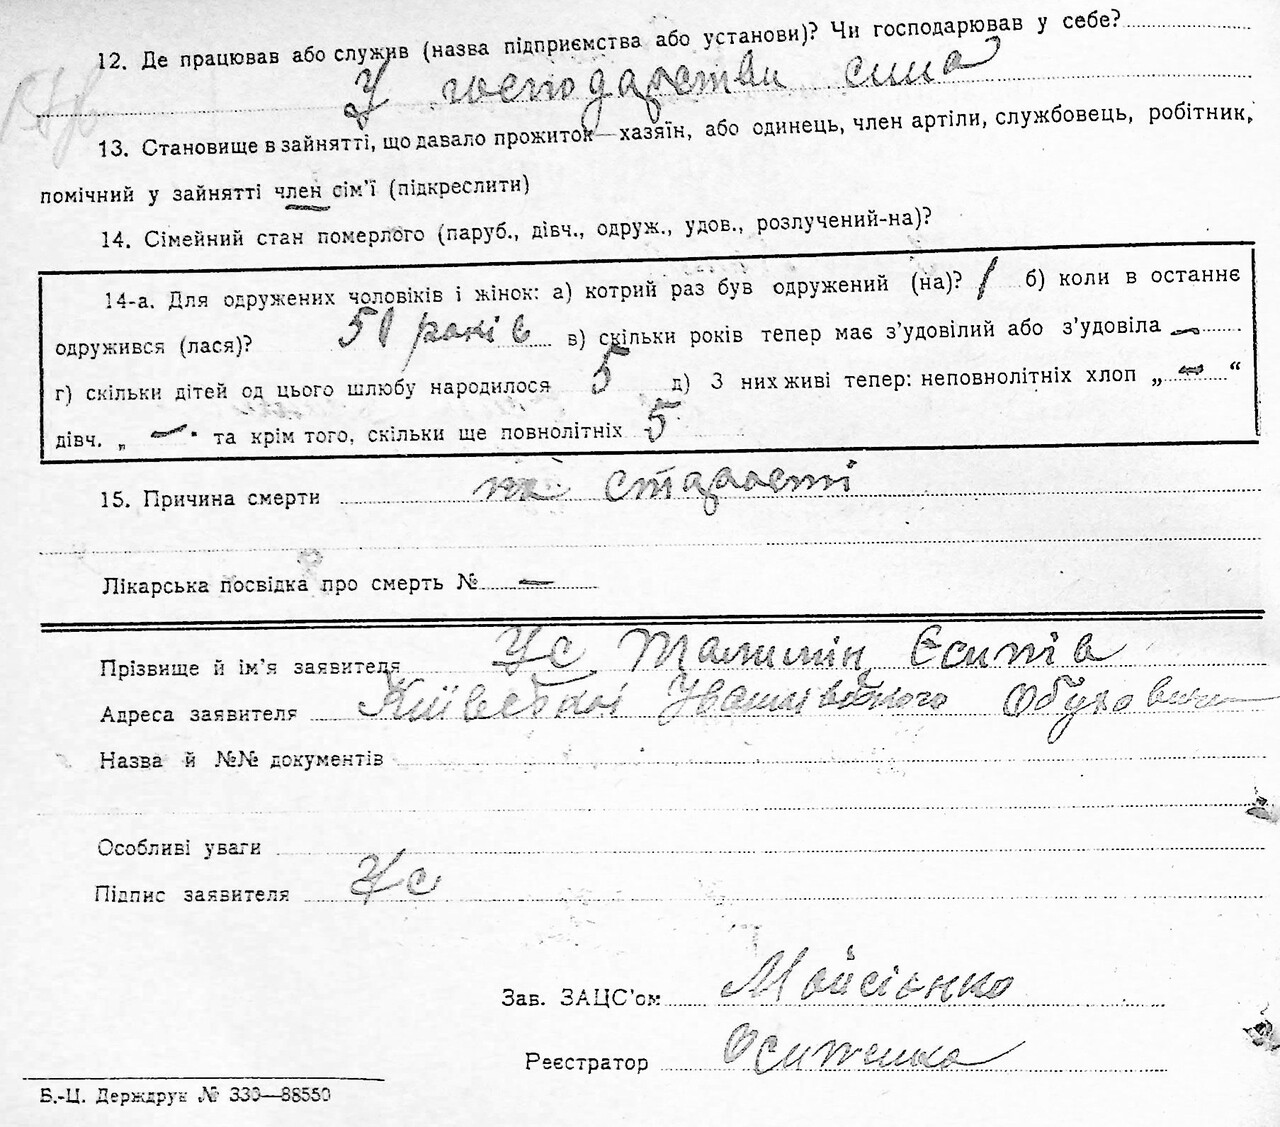 12. Де працював або служив (назва підприємства або установи)? Чи господарював у себе?
У господарстви сина
13. Становище в зайнятті, що давало прожиток—хазяїн, або одинець, член артіли, службовець, робітник,
помічний у зайнятті член сім'ї (підкреслити)
14. Сімейний стан померлого (паруб., дівч., одруж., удов., розлучений-на)?
14-а. Для одружених чоловіків і жінок: а) котрий раз був одружений (на)? 1 б) коли в останнє
одружився (лася)? 50 років в) скільки років тепер має з'удовілий або з'удовіла —
г) скільки дітей од цього шлюбу народилося 5 д) З них живі тепер: неповнолітніх хлоп „ — “
дівч. „ — " та крім того, скільки ще повнолітніх 5
15. Причина смерти на старості
Лікарська посвідка про смерть № —
Прізвище й ім'я заявителя Ус Єсипів
Адреса заявителя Київської
Назва й №№ документів
Особливі уваги
Підпис заявителя Ус
Зав. ЗАЦС'ом Мойсіэнко
Реєстратор Осипенко
Б.-Ц. Держдрук № 333—88550